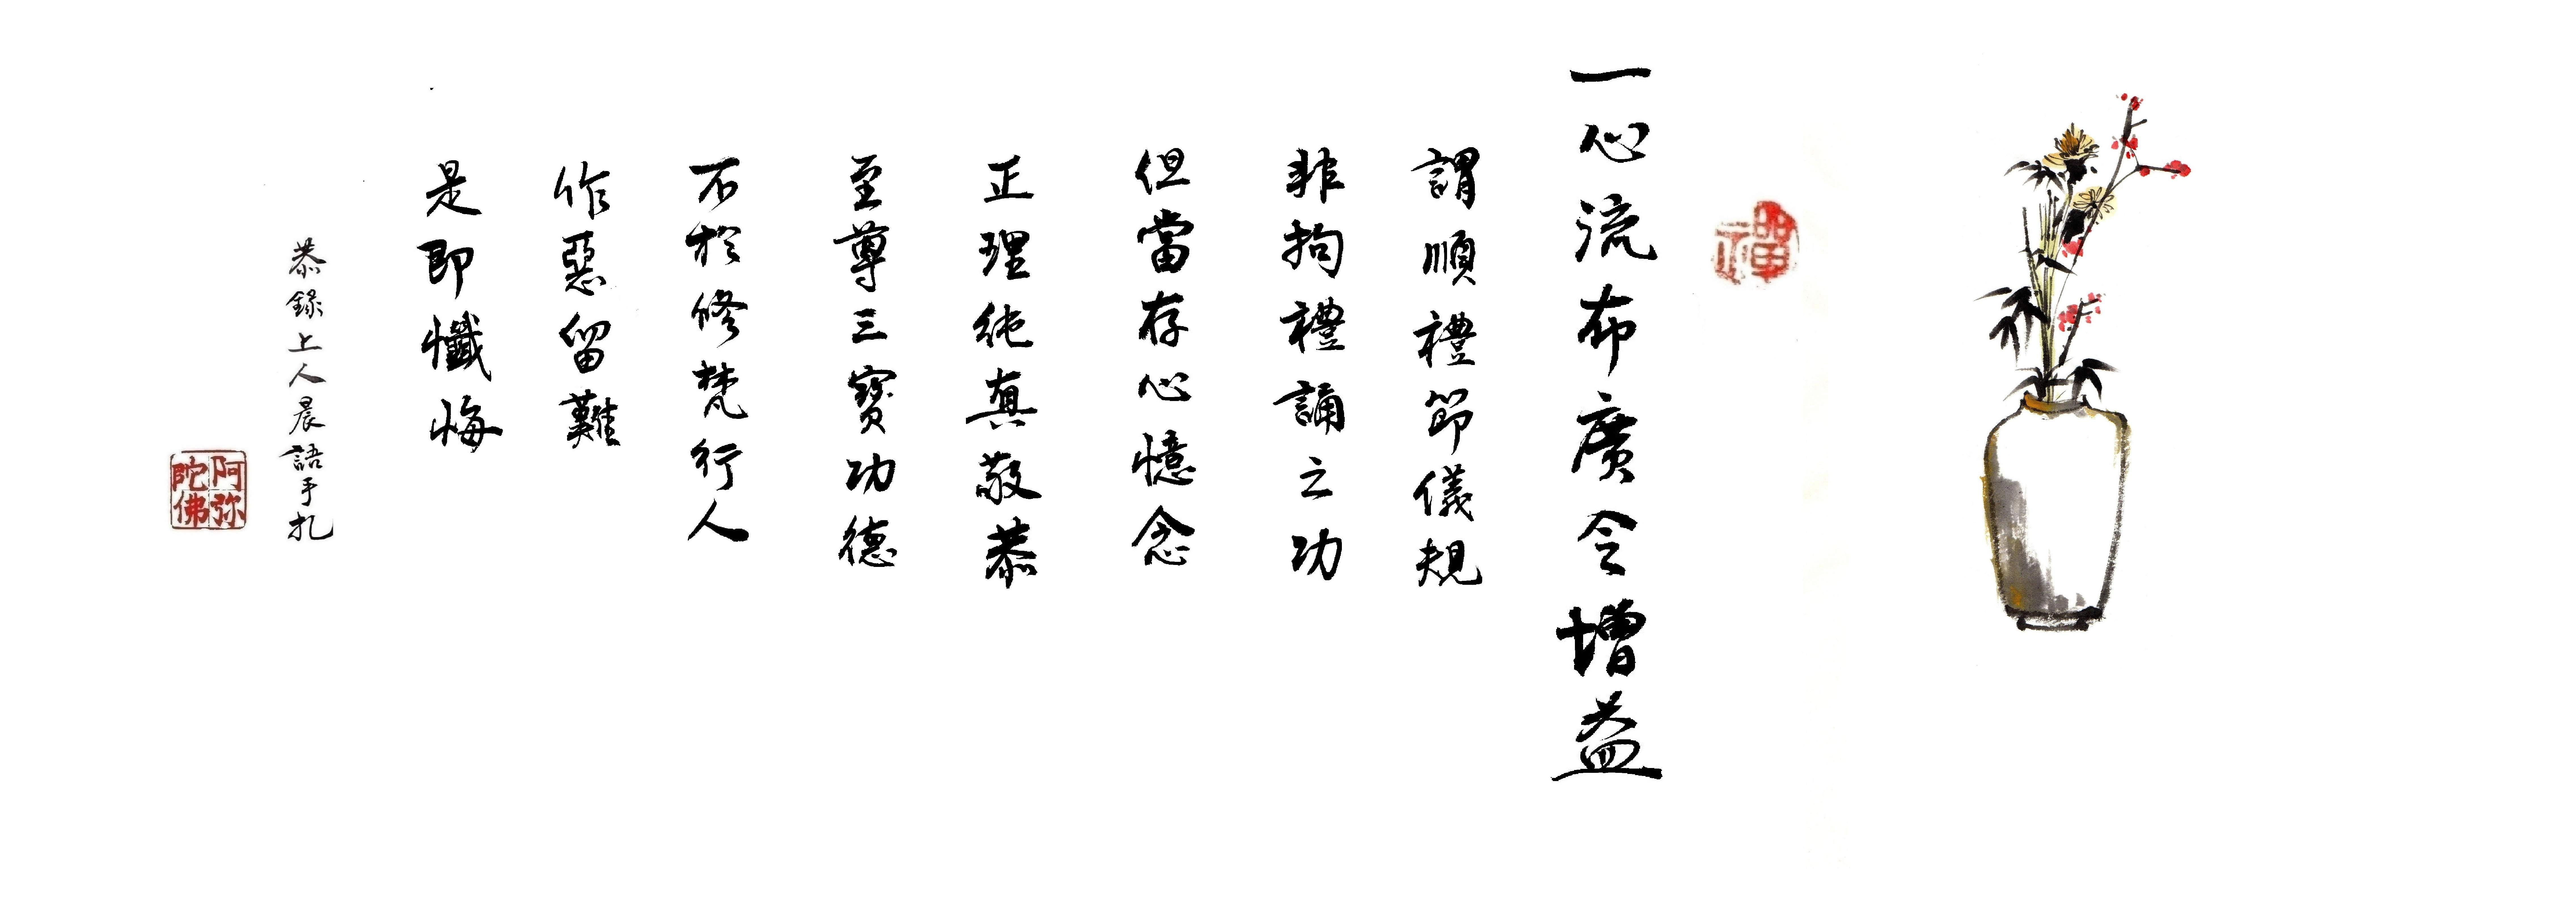 禪
一心流布廣令增益
謂順禮節儀規
非拘禮誦之功
但當存心憶念
正理純真敬恭
至尊三寶功德
不於修梵行人
作惡留難
是即懺悔
恭錄上人晨語手扎
阿弥
陀佛